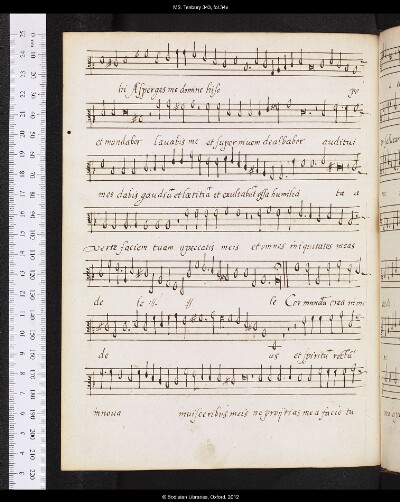 bi Asperges me domine hiso po
et mundabor Lauabis me et super niuem dealbabor auditui
meo dabis gaudiū et lætitiā et exultabūt ossa humilia ta a
verte faciem tuam a peccatis meis et omnes iniquitates meas
de le :ij: ij le Cor mundū crea in mi
de us et spiritū rectū
innoua in uisceribus meis ne proijcias me a facie tu
© Bodleian Libraries, Oxford, 2012